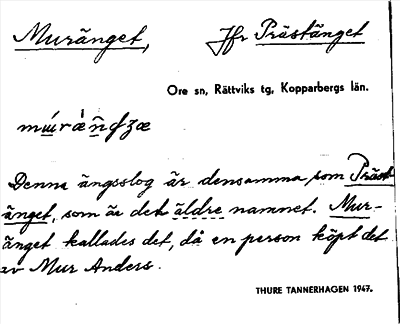 Muränget, Jfr Prästänget
Ore sn, Rättviks tg, Kopparbergs län.
Denna ängsslog är densamma som Präst
änget, som är det äldre namnet. Mur-
änget kallades det, då en person köpt det
av Mur Anders.
THURE TANNERHAGEN 1947.